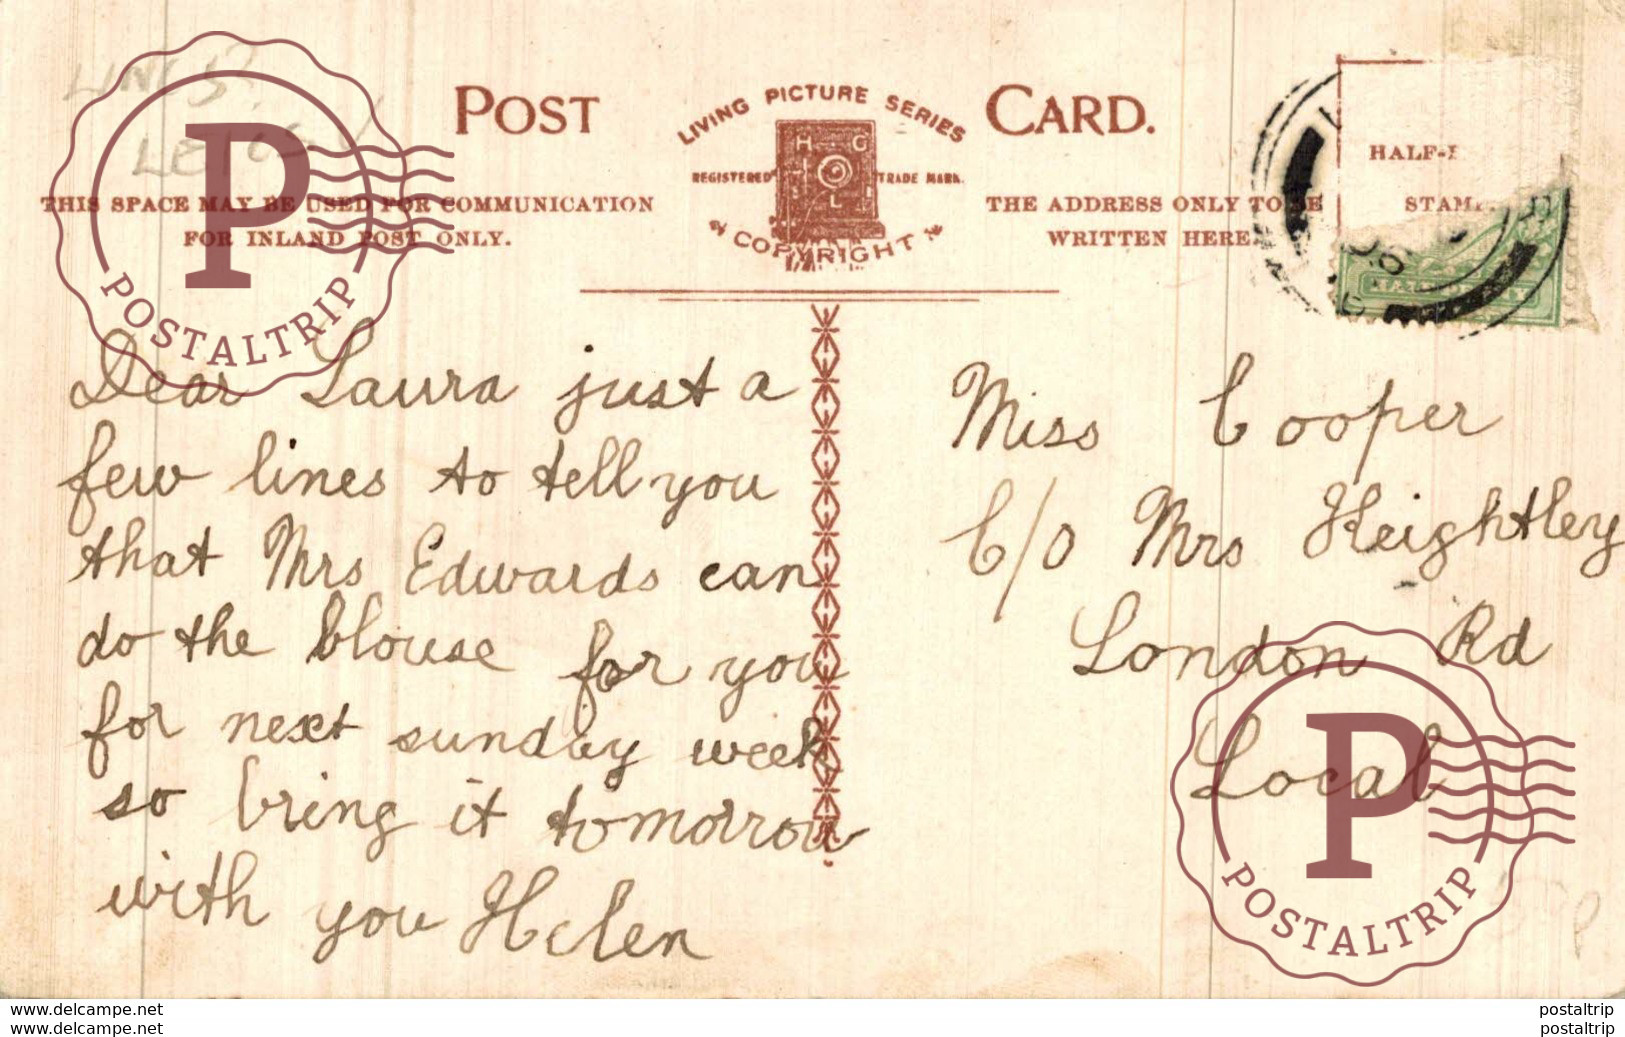 POST CARD.
LIVING PICTURE SERIES
H G
L
REGISTERED TRADE MARK.
COPYRIGHT
THIS SPACE MAY BE USED FOR COMMUNICATION
FOR INLAND POST ONLY.
THE ADDRESS ONLY TO BE
WRITTEN HERE.
HALF-
STAMP
Dear Laura just a
few lines to tell you
that Mrs Edwards can
do the blouse for you
for next sunday week
so bring it tomorrow
with you Helen
Miss Cooper
C/O Mrs Keightley
London Rd
Local
P
POSTALTRIP
P
POSTALTRIP
www.delcampe.net postaltrip
www.delcampe.net postaltrip